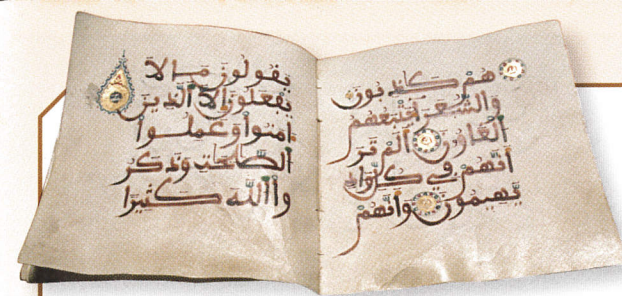 هُمْ كَٰذِبُونَ
وَالشُّعَرَا يَتْبَعُهُمُ
الْغَاوُۥنَ أَلَمْ تَرَ
أَنَّهُمْ فِي كُلِّ وَادٍ
يَهِيمُونَ وَأَنَّهُمْ
يَقُولُونَ مَا لَا
يَفْعَلُونَ إِلَّا الَّذِينَ
ءَامَنُوا وَعَمِلُوا
الصَّٰلِحَٰتِ وَذَكَرُ
وا اللَّهَ كَثِيرًا